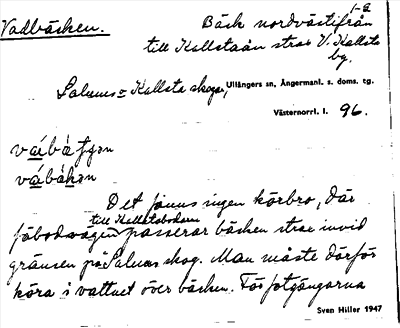 1-2
Vadbäcken. Bäck nordvästifrån
till Kallstaån strax V. Kallsta
by.
Salums o Kallsta skogar, Ullångers sn, Ångermanl. s. doms. tg.
Västernorrl. l. 96.
Det finns ingen körbro, där
till Kallstabodarna
fäbodvägen passerar bäcken strax invid
gränsen på Salums skog. Man måste därför
köra i vattnet över bäcken. För fotgängarna
Sven Hiller 1947